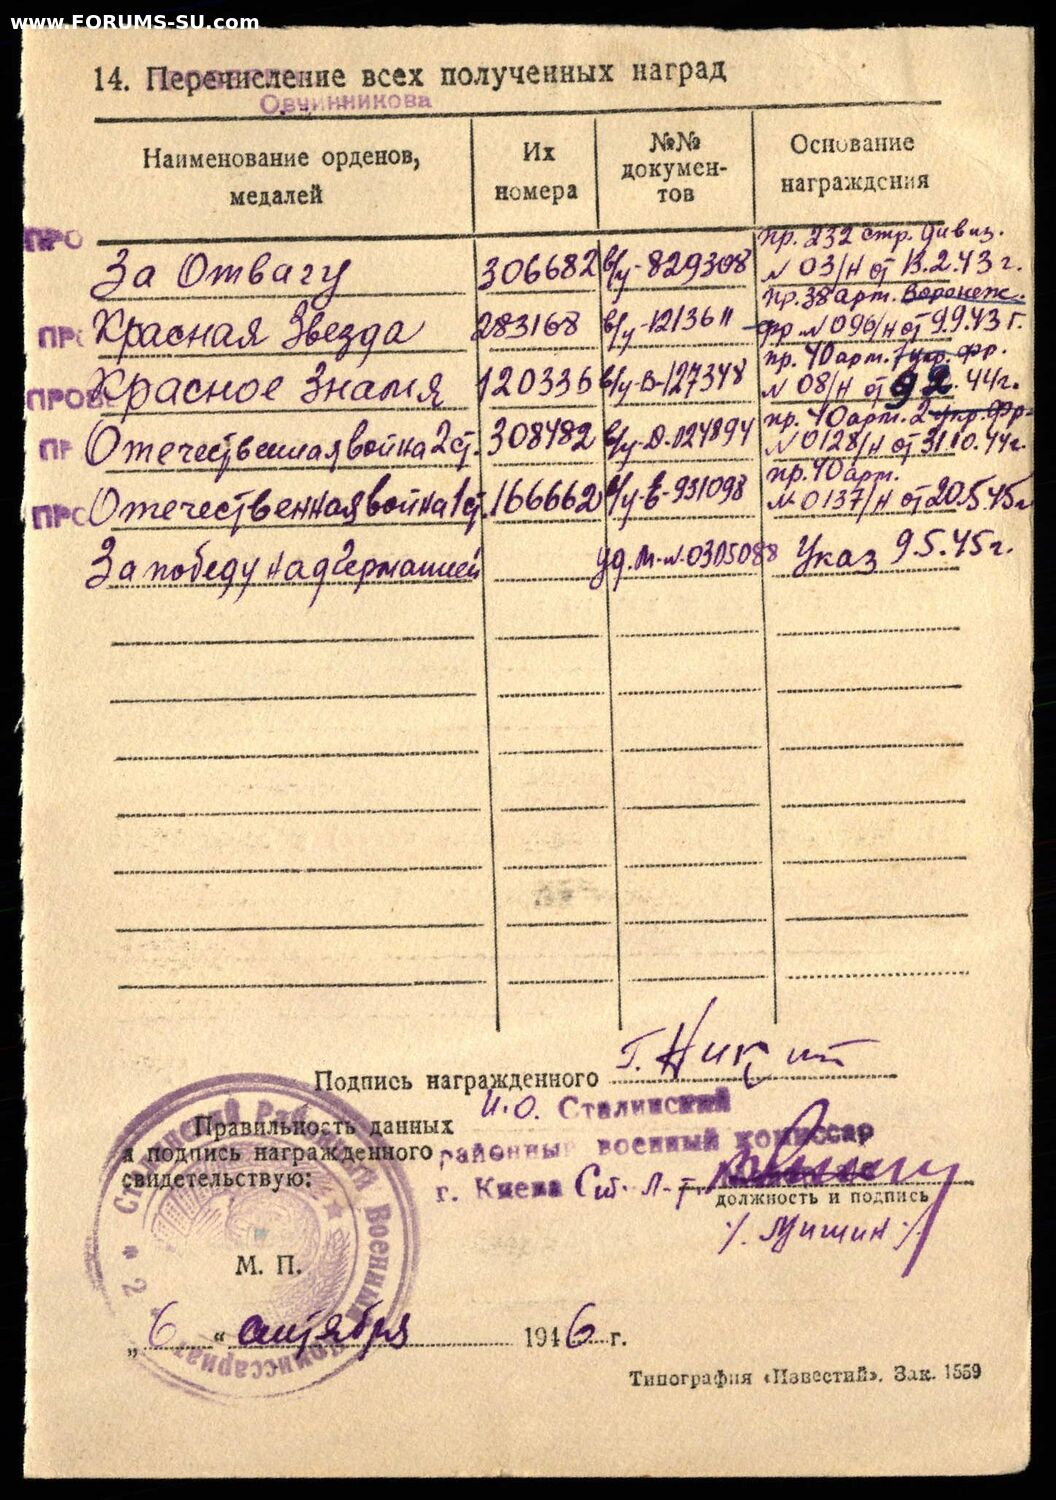 www.FORUMS-SU.com
14. Перечисление всех полученных наград
Овчинникова
Наименование орденов, медалей
Их номера
№№ докумен-тов
Основание награждения
ПРО
За Отвагу 306682 в/у-829308 пр. 232 стр. дивиз. № 03/н от 13.2.43 г.
ПРО
Красная Звезда 283168 в/у-1213611 пр. 38 арм. Воронеж. фр. № 096/н от 9.9.43 г.
ПРОВ
Красное Знамя 120336 в/у-В-127348 пр. 40 арм. 1 укр. фр. № 08/н от 9 2. 44 г.
ПР
Отечественная война 2 ст. 308482 в/у-Д-124894 пр. 40 арм. 2 укр. фр. № 0128/н от 31.10.44 г.
ПРО
Отечественная война 1 ст. 166662 в/у-Е-931098 пр. 40 арм. № 0137/н от 20.5.45 г.
За победу над Германией уд. М-№-0305088 Указ 9.5.45 г.
Подпись награжденного
И.О. Сталинский
Правильность данных
и подпись награжденного
районный военный комиссар
свидетельствую:
г. Киева
должность и подпись
/. Мишин ./
Сталинский Районный Военный Комиссариат * 2 *
М. П.
„ 6 “ сентября 1946 г.
Типография «Известий». Зак. 1559